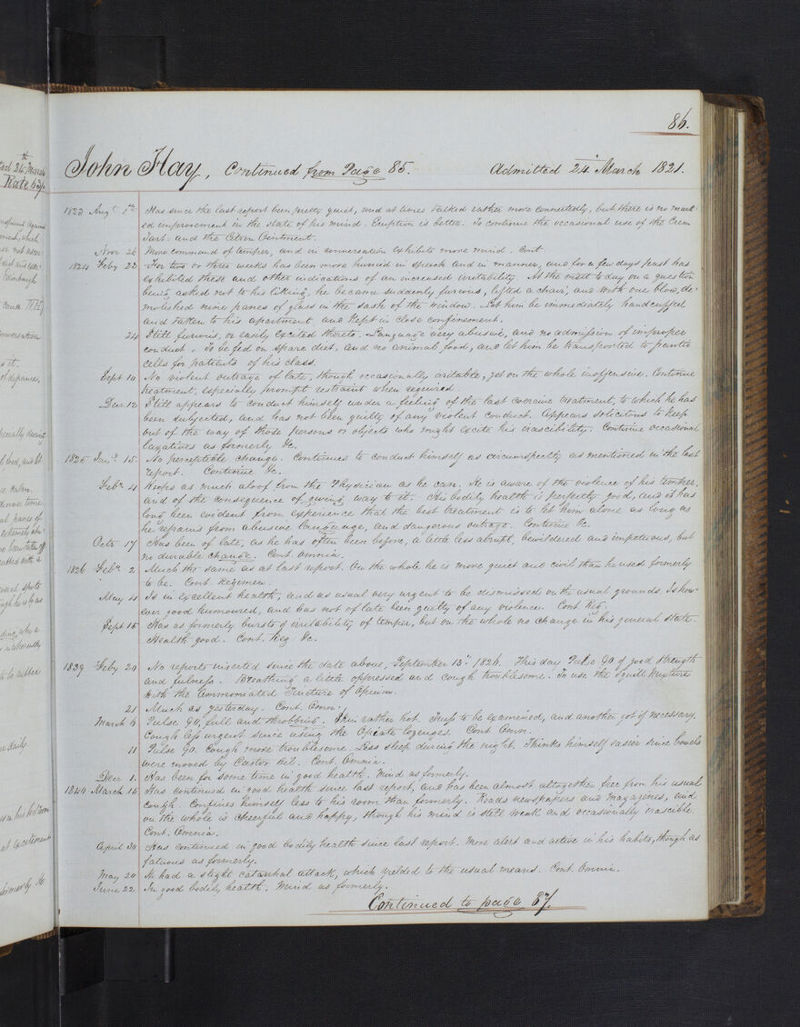 86.
John Hay, Continued from Page 85. Admitted 24 March 1821.
1823 Augt 1st Has since the last report been pretty quiet, and at times talked rather more connectedly, but there is no mark-
ed improvement in the state of his mind. Eruption is better. To continue the occasional use of the Crem
Tart. and the Citron Ointment.
Nov 26 More command of temper, and in conversation exhibits more mind. Cont.
1824 Feby 22 For two or three weeks has been more hurried in speech and in manner, and for a few days past has
exhibited these and other indications of an increased irritability. At the visit to day, on a question
being asked not to his liking, he became suddenly furious, lifted a chair, and with one blow, de-
molished nine panes of glass in the sash of the window. Let him be immediately handcuffed
and taken to his apartment, and kept in close confinement.
24 Still furious, or easily excited thereto. Language very abusive, and no admission of improper
conduct. To be fed on spare diet, and no animal food, and let him be transported to
cells for patients of his class.
Sept 10 No violent outrage of late, though occasionally irritable, yet on the whole inoffensive. Continue
treatment, especially prompt restraint when required.
Decr 12 Still appears to conduct himself under a feeling of the last coercive treatment, to which he has
been subjected, and has not been guilty of any violent conduct. Appears solicitous to keep
out of the way of those persons or objects who might excite his irascibility. Continue occasional
laxatives as formerly &c.
1825 Jany 15. No perceptible change. Continues to conduct himself as circumspectly as mentioned in the last
report. Continue &c.
Feby 4 Keeps as much aloof from the Physician as he can. He is aware of the violence of his temper,
and of the consequence of giving way to it. His bodily health is perfectly good, and it has
long been evident from experience that the best treatment is to let him alone as long as
he refrains from abusive language, and dangerous outrage. Continue &c.
Octr 17 Has been of late, as he has often been before, a little less abrupt, bewildered and impetuous, but
no durable change. Cont. omnia.
1826 Feby 2 Much the same as at last report. On the whole he is more quiet and civil than he used formerly
to be. Cont. Regimen.
May 4 Is in excellent health, and as usual very urgent to be dismissed on the usual grounds. Is how-
ever good humoured, and has not of late been guilty of any violence. Cont Reg.
Sept 15 Has as formerly bursts of irritability of temper, but on the whole no change in his general state.
Health good. Cont. Reg &c.
1839 Feby 20 No reports inserted since the date above, September 15th 1826. This day Pulse 90 of good strength
and fulness. Breathing a little oppressed and cough troublesome. To use the Squill Mixture
with the Ammoniated Tincture of Opium.
21 Much as yesterday. Cont. Omnia.
March 6 Pulse 90, full and throbbing. Skin rather hot. Truss to be examined, and another got if necessary.
Cough less urgent since using the Opiate lozenges. Cont Omn.
11 Pulse 90. Cough more troublesome. Less sleep during the night. Thinks himself easier since bowels
were moved by Castor Oil. Cont. Omnia.
Decr 1. Has been for some time in good health. Mind as formerly.
1840 March 15 Has continued in good health since last report, and has been almost altogether free from his usual
cough. Confines himself less to his room than formerly. Reads newspapers and magazines, and
on the whole is cheerful and happy, though his mind is still weak and occasionally irascible.
Cont. Omnia.
April 30 Has continued in good bodily health since last report. More alert and active in his habits, though as
fatuous as formerly.
May 20 He had a slight catarrhal attack, which yielded to the usual means. Cont. Omnia.
June 22. In good bodily health. Mind as formerly.
Continued to page 87.